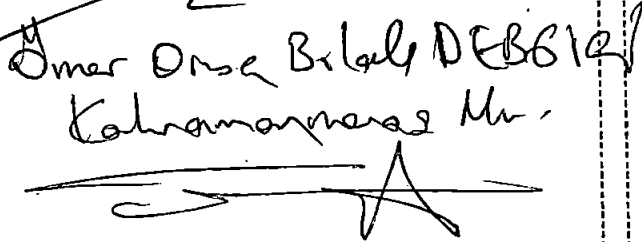 Ömer Oruç Bilal DEBGİCİ
Kahramanmaraş Mv.